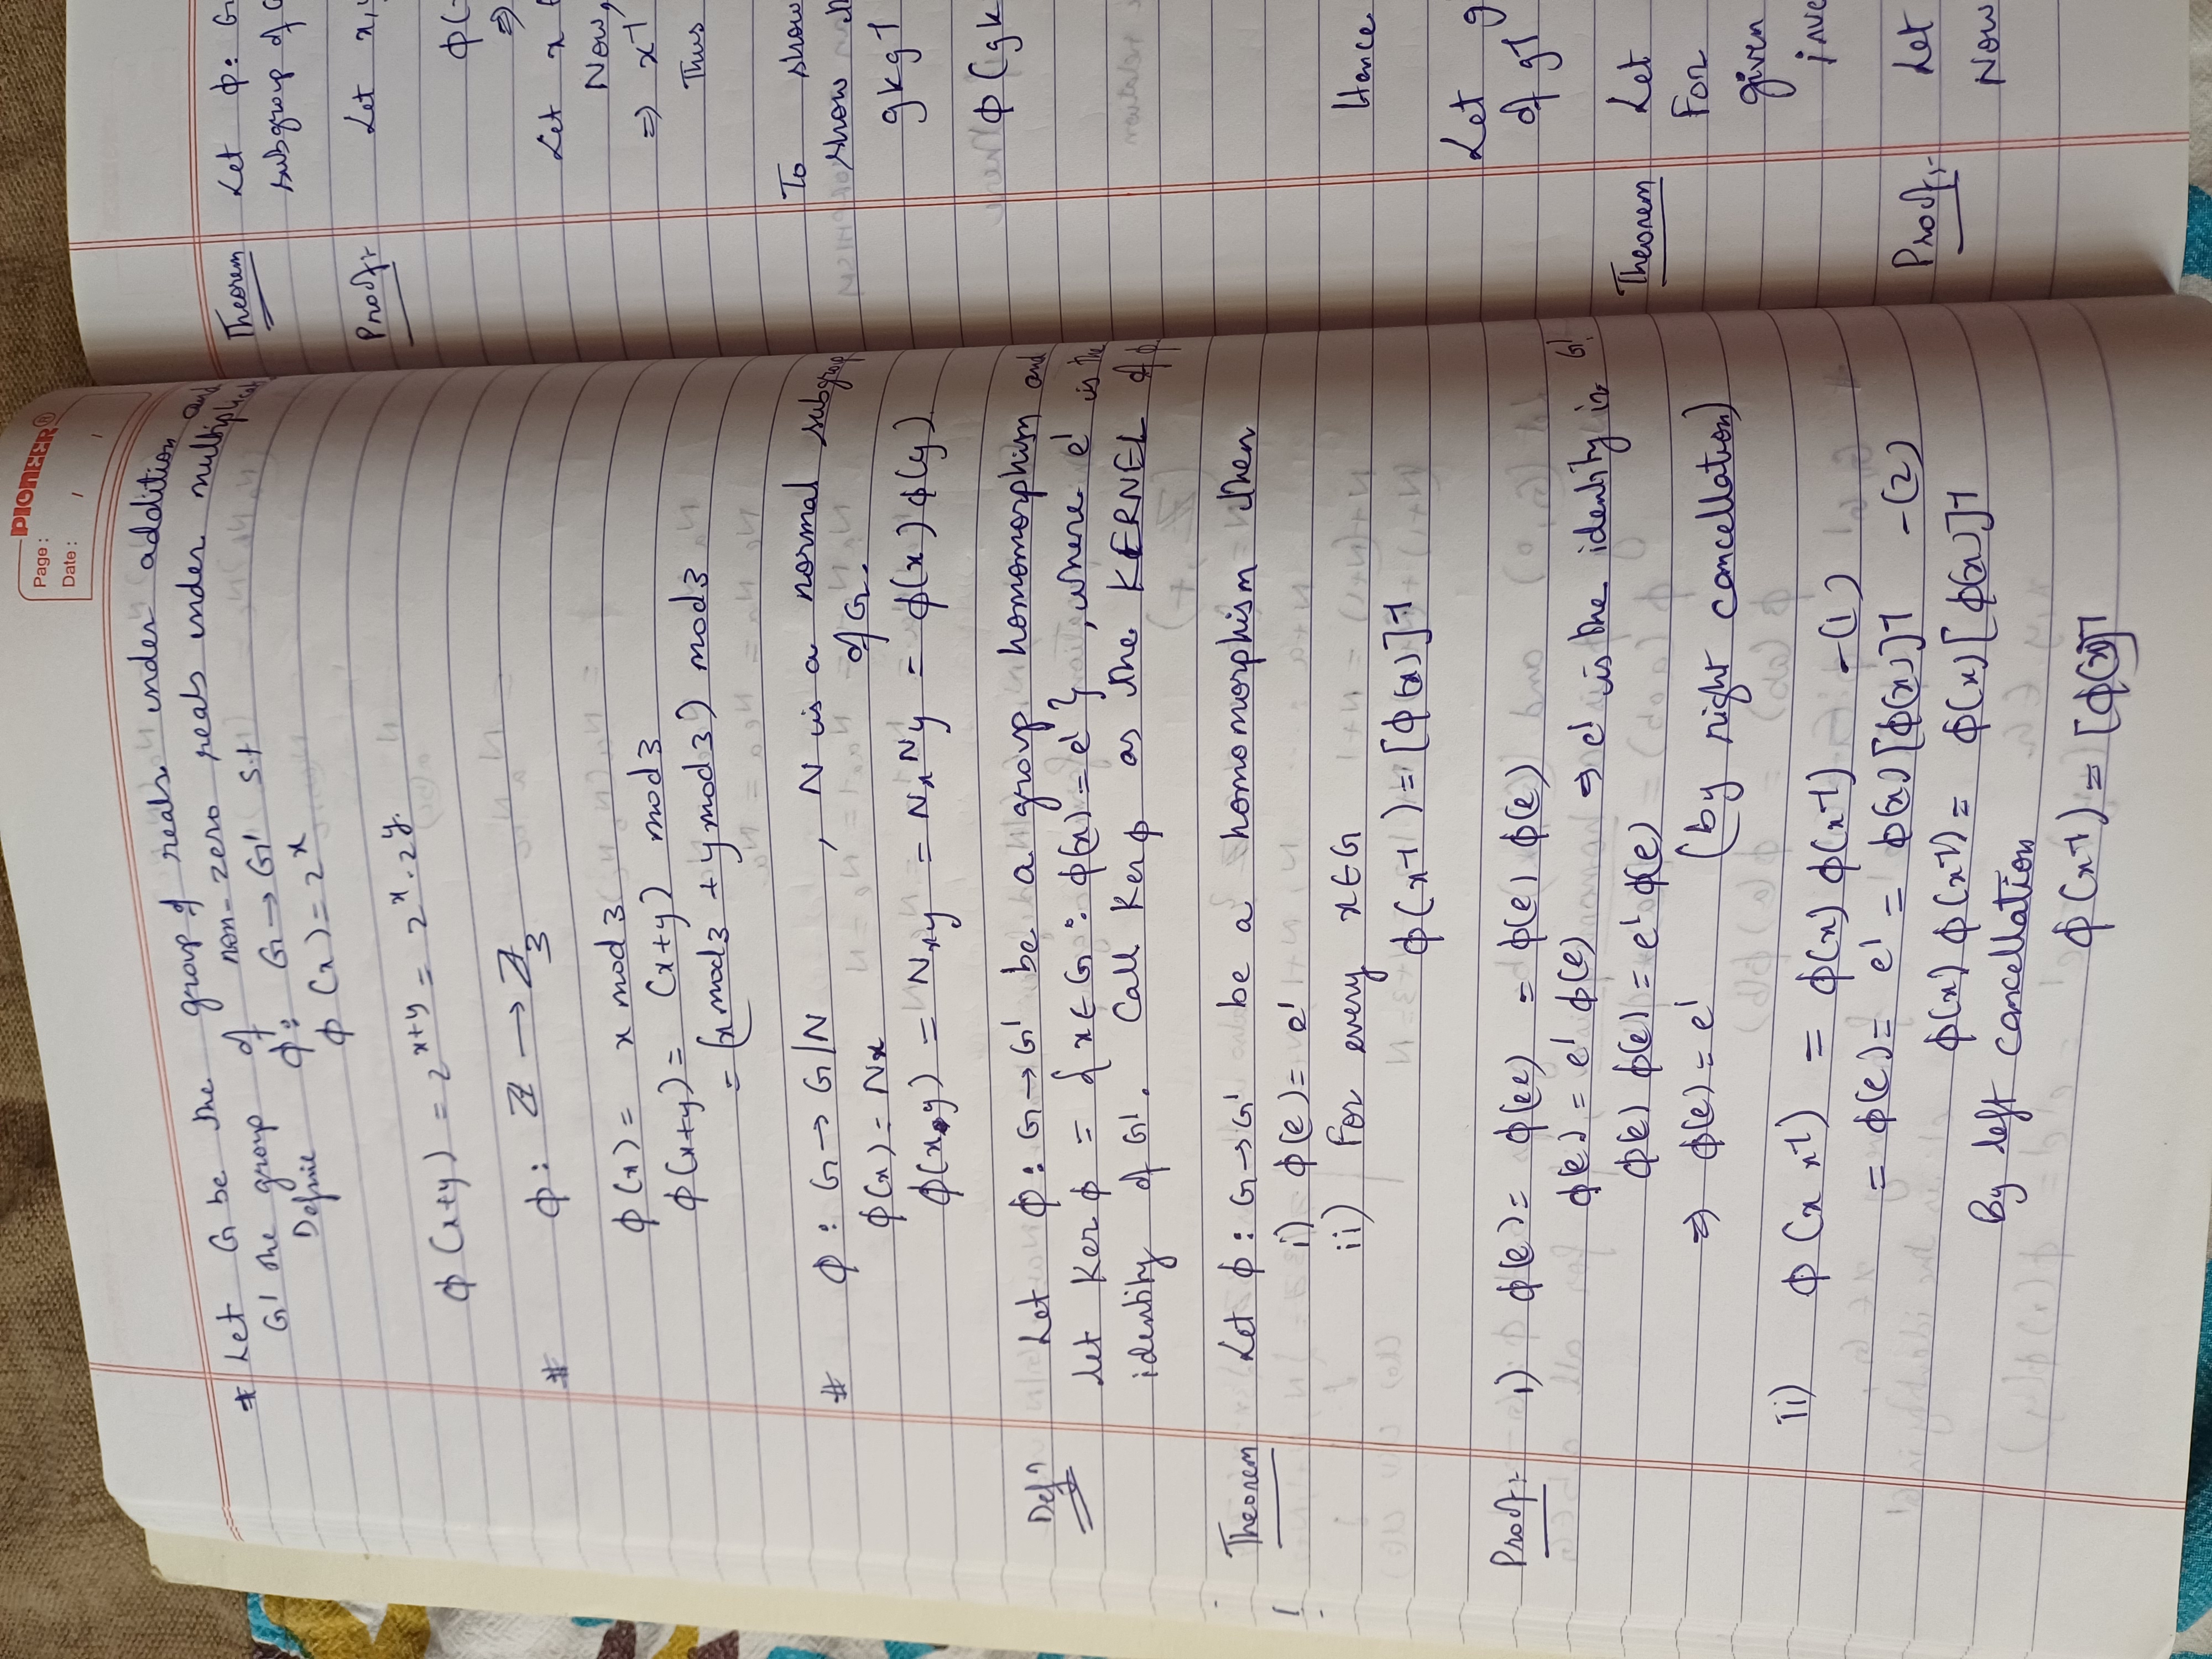 PIONEER®
Page :
Date : / /
* Let G be the group of reals under addition and
G' the group of non-zero reals under multiplicat
Define φ: G → G' s.t
φ(x) = 2^x
φ(x+y) = 2^{x+y} = 2^x . 2^y.
# φ: Z → Z_3
φ(x) = x mod 3
φ(x+y) = (x+y) mod 3
= (x mod 3 + y mod 3) mod 3
# φ: G → G/N , N is a normal subgroup of G.
φ(x) = Nx
φ(xy) = Nxy = Nx Ny = φ(x) φ(y)
Defn Let φ: G → G' be a group homomorphism and
Let Ker φ = {x ∈ G : φ(x) = e'}, where e' is the
identity of G'. Call Ker φ as the KERNEL of φ
Theorem Let φ: G → G' be a homomorphism then
i) φ(e) = e'
ii) For every x ∈ G
φ(x^-1) = [φ(x)]^-1
Proof:- i) φ(e) = φ(ee) = φ(e) φ(e)
φ(e) = e' φ(e) ⇒ e' is the identity in G'.
φ(e) φ(e) = e' φ(e)
⇒ φ(e) = e' (by right cancellation)
ii) φ(x x^-1) = φ(x) φ(x^-1) -(1)
= φ(e) = e' = φ(x) [φ(x)]^-1 -(2)
φ(x) φ(x^-1) = φ(x) [φ(x)]^-1
By left cancellation
φ(x^-1) = [φ(x)]^-1
Theorem Let φ: G
subgroup of G
Proof:- Let x,
φ(
⇒
Let x
Now,
⇒ x^-1
Thus
To show
show
gkg^-1
φ(gk
Hence
Let g
of g^-1
Theorem Let
For
given
inve
Proof:- Let
Now